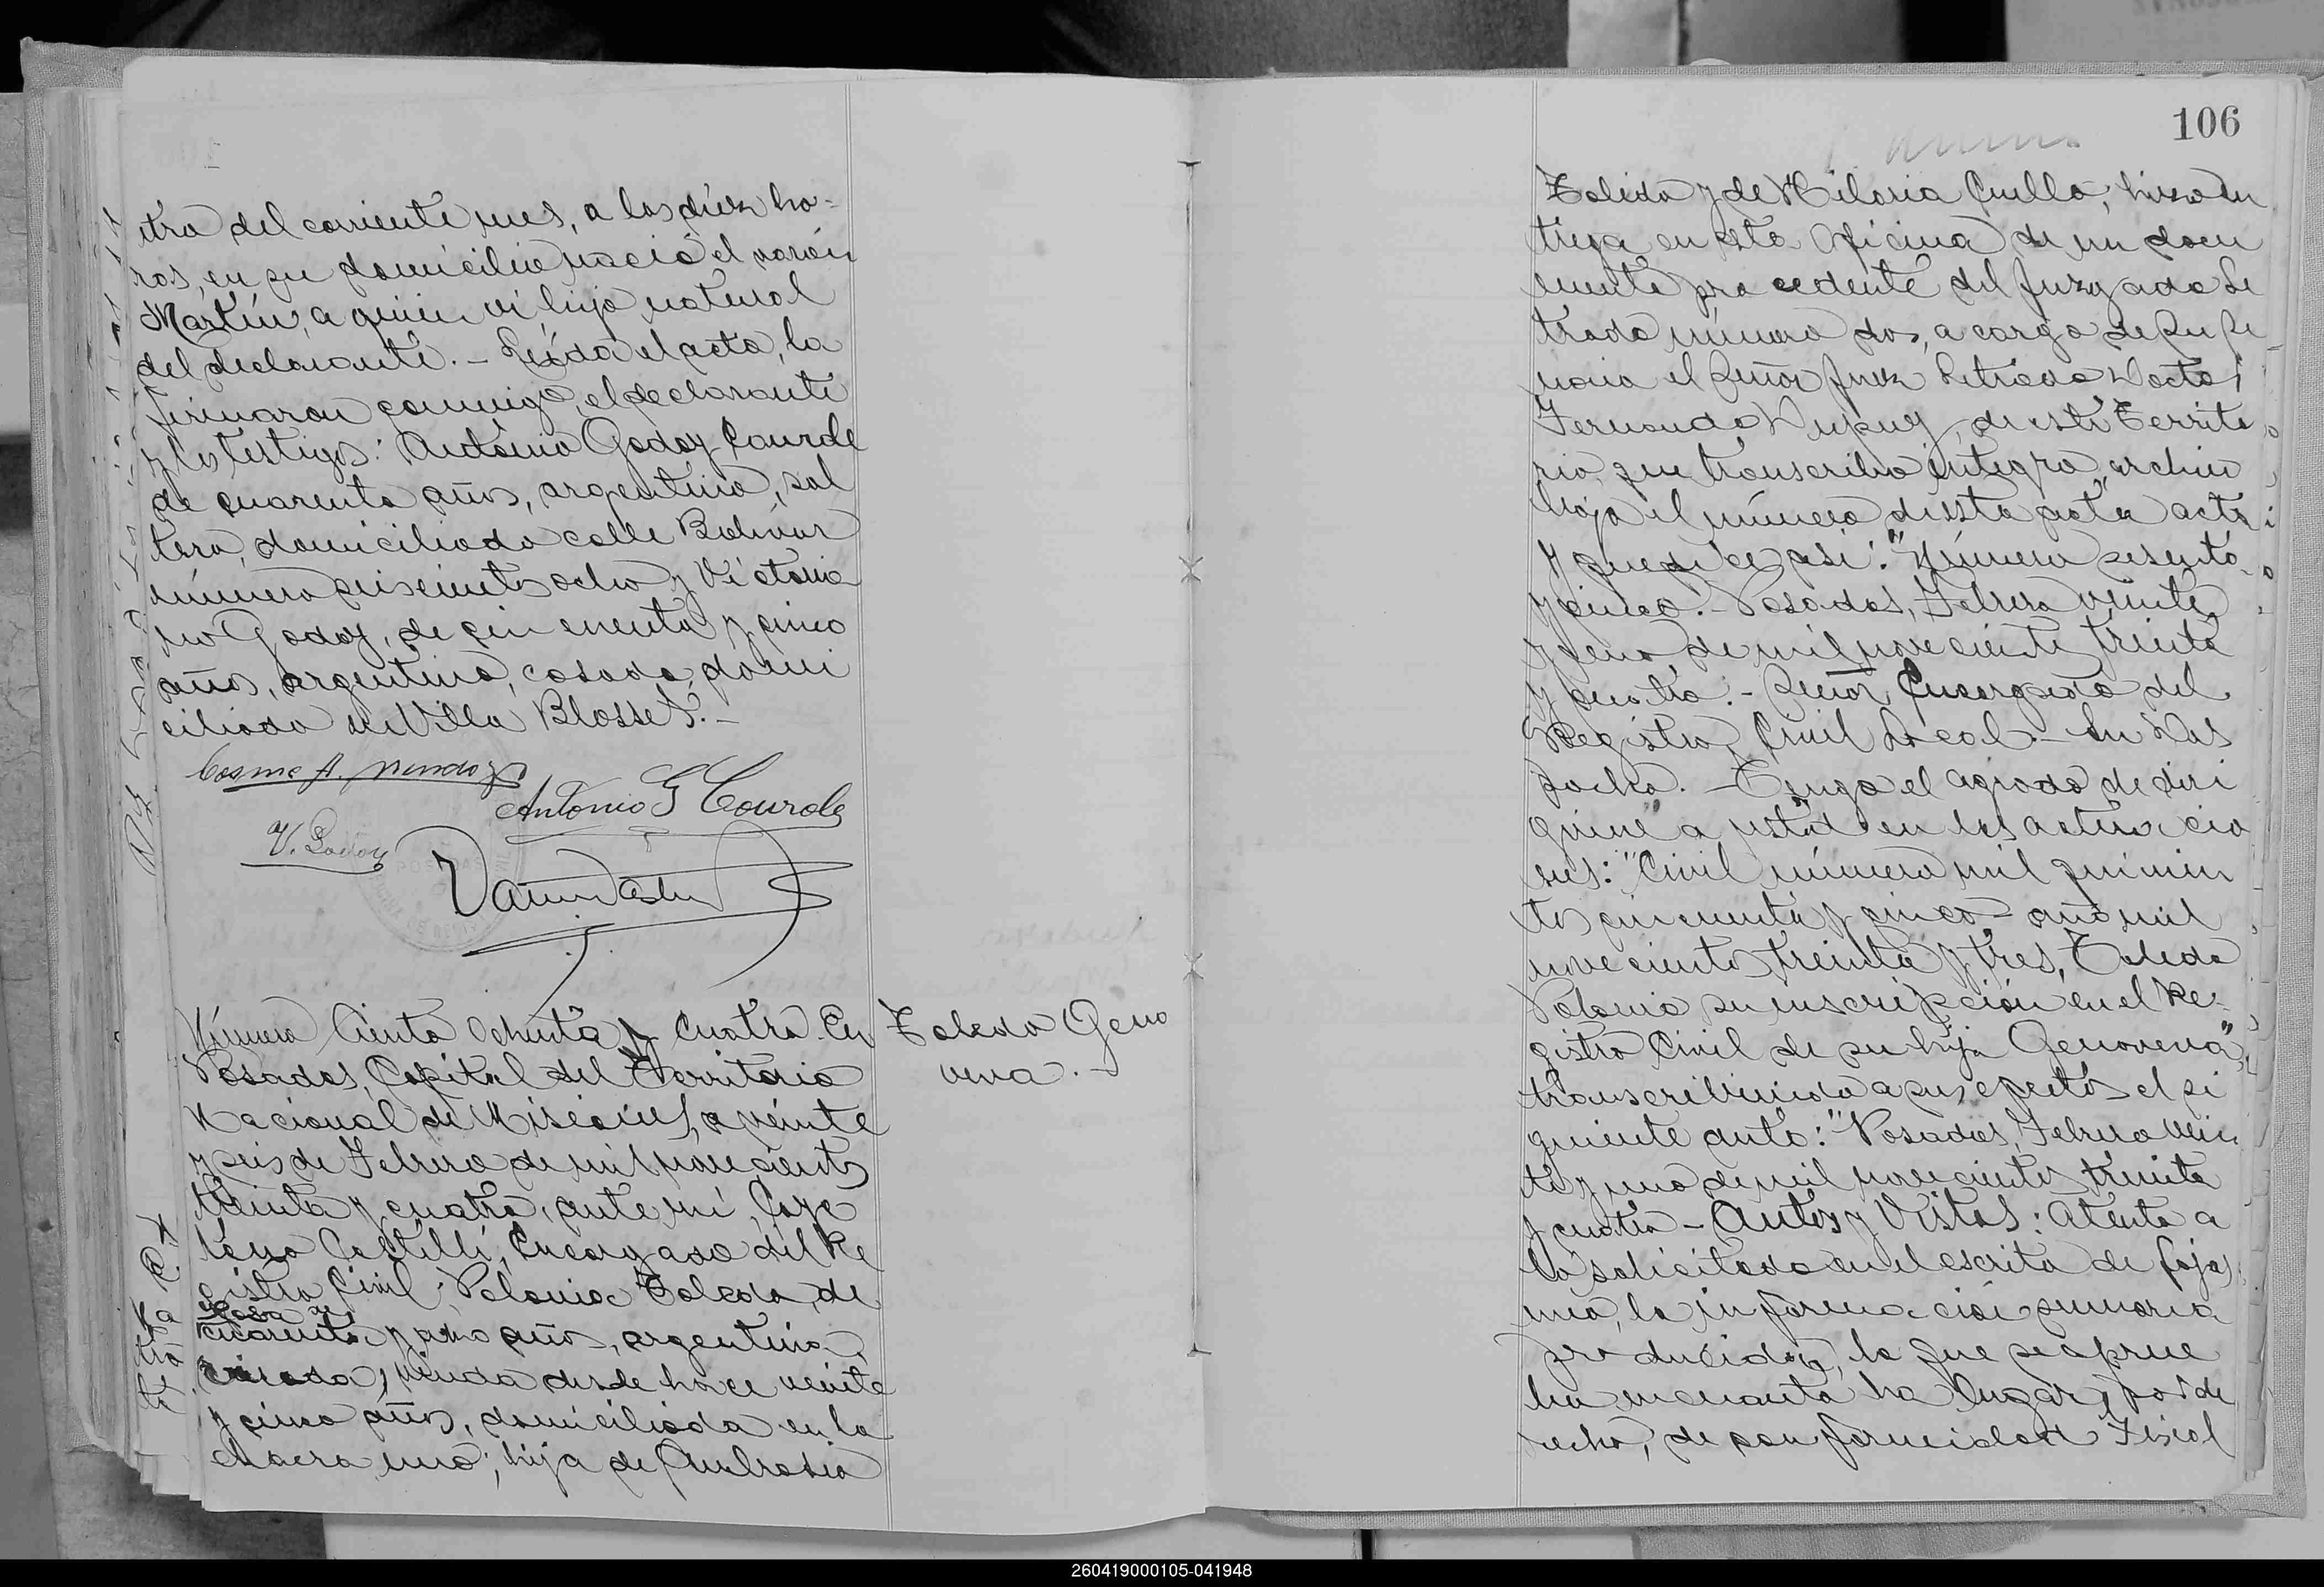 tro del corriente mes, a las diez ho-
ras, en su domicilio nació el varón
Martín, a quien vi, hijo natural
del declarante. - Leída el acta, la
firmaron conmigo, el declarante
y los testigos: Antonio Godoy Courde
de cuarenta años, argentino, sol
tero, domiciliado calle Bolívar
número seiscientos ocho y Victoria
no Godoy, de cincuenta y cinco
años, argentino, casado, domi
ciliado en Villa Blosset. -
Cosme A. Mendoza
Antonio G Courde
V. Godoy
Número Ciento Ochenta y Cuatro. En
Posadas, Capital del Territorio
Nacional de Misiones, a veinte
y seis de Febrero de mil novecientos
treinta y cuatro, ante mí, Caye
tano Castelli, Encargado del Re
gistro Civil; Polonia Toledo, de
cuarenta y años, argentina,
viuda desde hace veinte
y cinco años, domiciliada en la
chacra uno; hija de Ambrosio
Toledo Geno
veva. -
106
Toledo y de Hilaria Cuello; hizo en
trega en esta Oficina de un docu
mento procedente del Juzgado Le
trado número dos, a cargo de Su Se
ñoria el Señor Juez Letrado Doctor
Fernando Dupuy, de este Territo
rio, que transcribo íntegro, archivo
bajo el número de esta acta
y que dice así: "Número sesenta
y cinco. - Posadas, Febrero veinte
y uno de mil novecientos treinta
y cuatro. - Señor Encargado del
Registro Civil Local. - Su Des
pacho. - Tengo el agrado de diri
girme a usted en las actuacio
nes: "Civil número mil quinien
tos cincuenta y cinco - año mil
novecientos treinta y tres, Toledo
Polonia su inscripción en el Re-
gistro Civil de su hija Genoveva",
transcribiendo a sus efectos el si
guiente auto: "Posadas, Febrero vein
te y uno de mil novecientos treinta
y cuatro - Autos y Vistos: Atento a
lo solicitado en el escrito de fojas
una, la información sumaria
producida, la que se aprue
ba en cuanto ha lugar por de
recho, de conformidad Fiscal
260419000105-041948